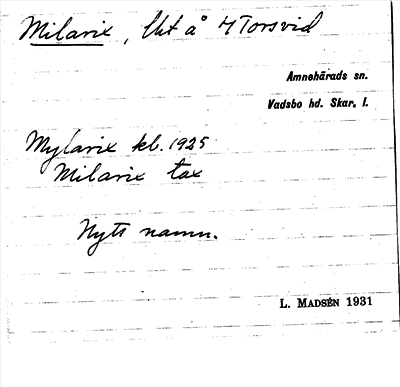 Milarix, Lht å 4 Torsvid
Amnehärads sn.
Vadsbo hd. Skar. l.
Mylarix kb. 1925
Milarix tax
Nytt namn.
L. MADSÉN 1931